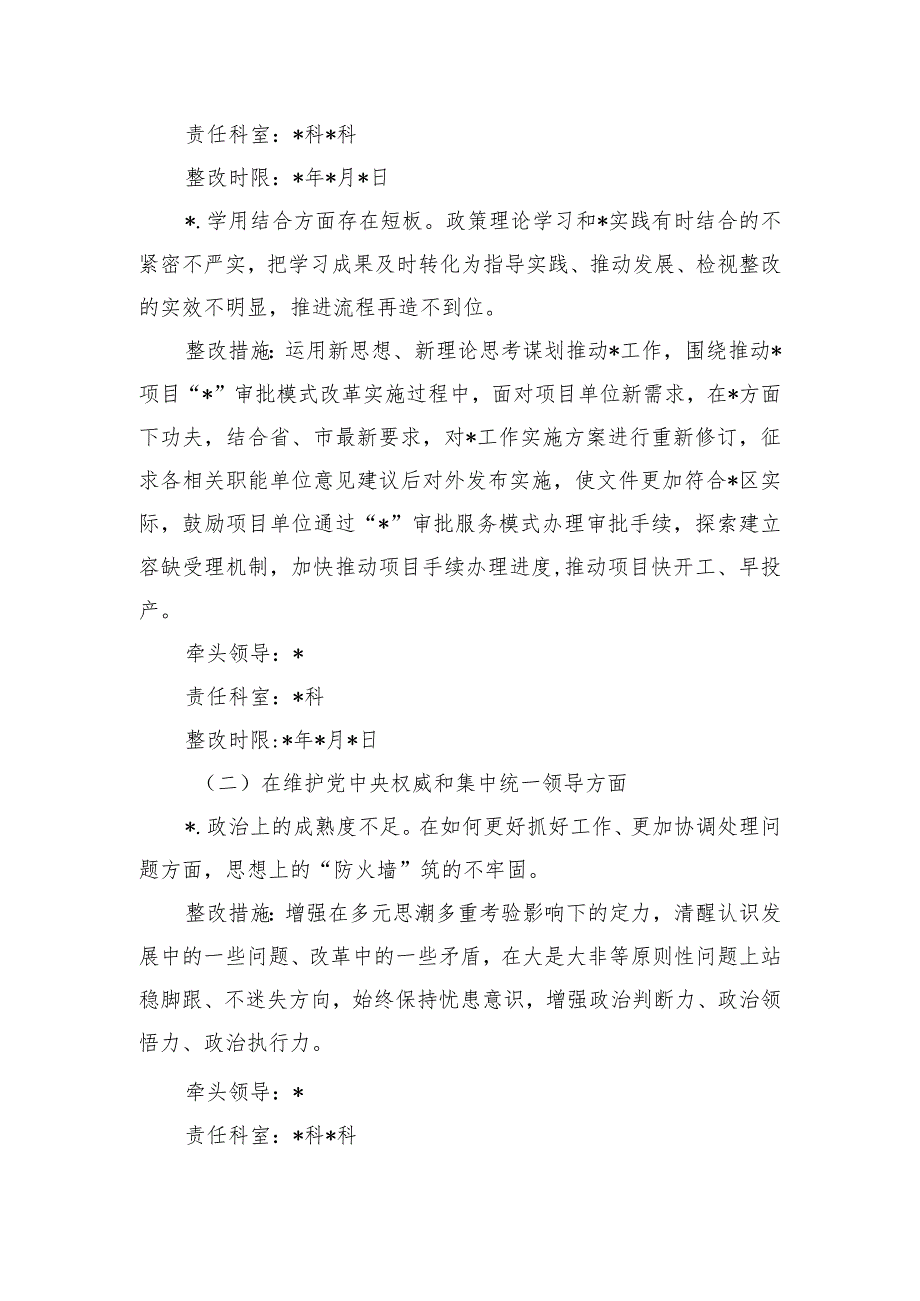 责任科室：*科*科
整改时限：*年*月*日
*.学用结合方面存在短板。政策理论学习和*实践有时结合的不
紧密不严实，把学习成果及时转化为指导实践、推动发展、检视整改
的实效不明显，推进流程再造不到位。
整改措施：运用新思想、新理论思考谋划推动*工作，围绕推动*
项目“*”审批模式改革实施过程中，面对项目单位新需求，在*方面
下功夫，结合省、市最新要求，对*工作实施方案进行重新修订，征
求各相关职能单位意见建议后对外发布实施，使文件更加符合*区实
际，鼓励项目单位通过“*”审批服务模式办理审批手续，探索建立
容缺受理机制，加快推动项目手续办理进度,推动项目快开工、早投
产。
牵头领导：*
责任科室：*科
整改时限:*年*月*日
（二）在维护党中央权威和集中统一领导方面
*.政治上的成熟度不足。在如何更好抓好工作、更加协调处理问
题方面，思想上的“防火墙”筑的不牢固。
整改措施：增强在多元思潮多重考验影响下的定力，清醒认识发
展中的一些问题、改革中的一些矛盾，在大是大非等原则性问题上站
稳脚跟、不迷失方向，始终保持忧患意识，增强政治判断力、政治领
悟力、政治执行力。
牵头领导：*
责任科室：*科*科